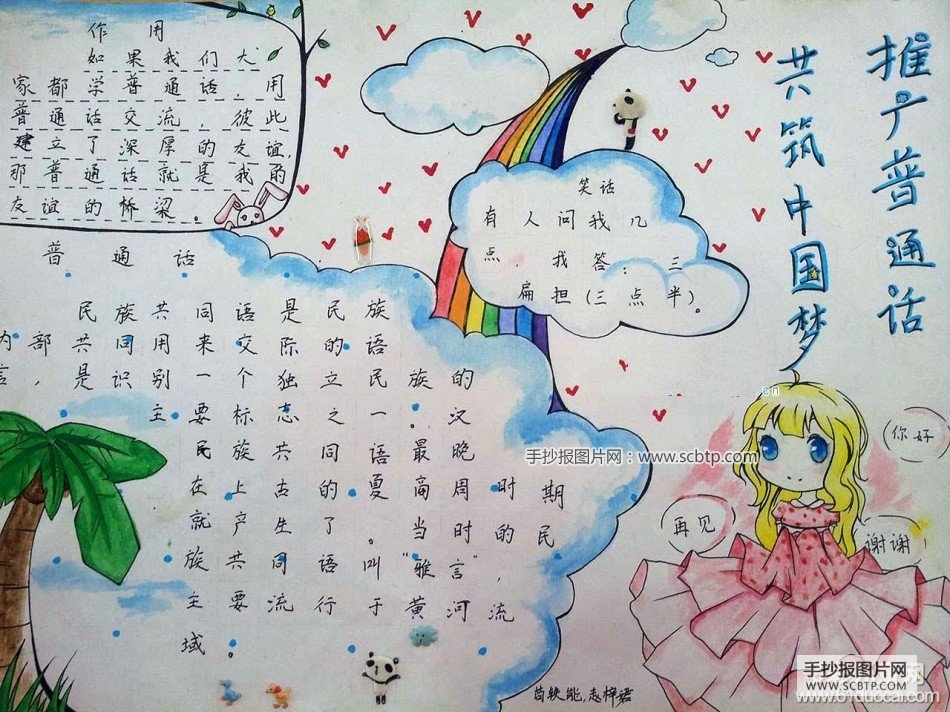 推广普通话
共筑中国梦
作用
如果我们大
家都学普通话,用
普通话交流,彼此
建立了深厚的友谊,
那普通话就是我的
友谊的桥梁。
笑话
有人问我几
点,我答:三
扁担(三点半)
。
普通话
民族共同语是民族
内部共同用来交际的语
言,是识别一个独立民族的
主要标志之一。汉
民族共同语最晚
在上古的夏商周时期
就产生了。当时的民
族共同语叫“雅言”,
主要流行于黄河流
域。
你好
再见
谢谢!
手抄报图片网:www.scbtp.com
手抄报图片网
WWW.SCBTP.COM